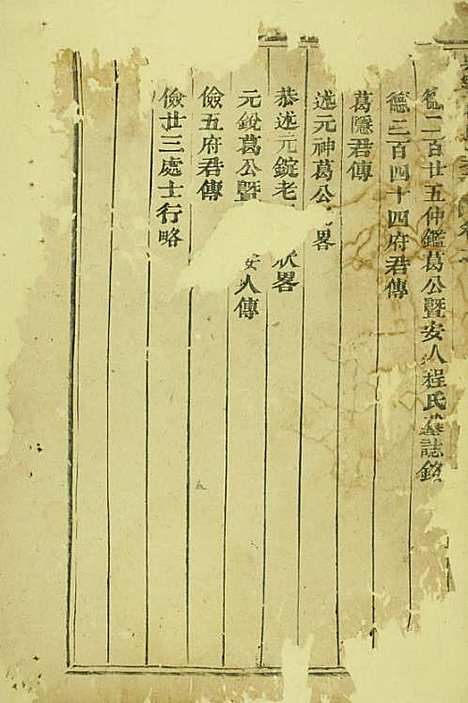 德二百廿五仲鑑葛公暨安人程氏墓誌銘
德二百四十四府君傳
葛隱君傳
述元神葛公 畧
恭述元錠老 狀畧
元銳葛公暨 安人傳
儉五府君傳
儉廿三處士行略